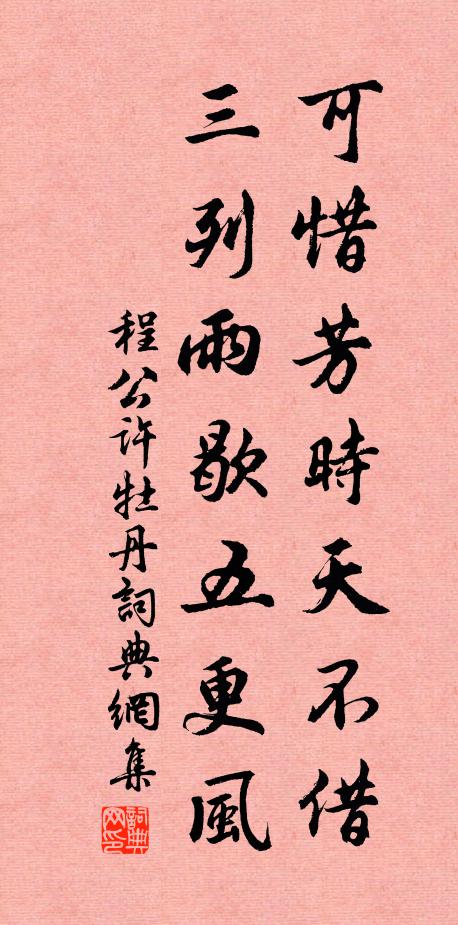 可惜芳時天不借
三列雨歇五更風
程公許牡丹詞典網集
詞典网印